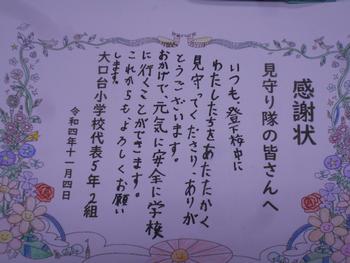 感謝状
見守り隊の皆さんへ
いつも、登下校中に
わたしたちをあたたかく
見守ってくださり、ありが
とうございます。
おかげで、元気に安全に学校
に行くことができます。
これからもよろしくお願い
します。
大口台小学校代表5年2組
令和四年十一月四日